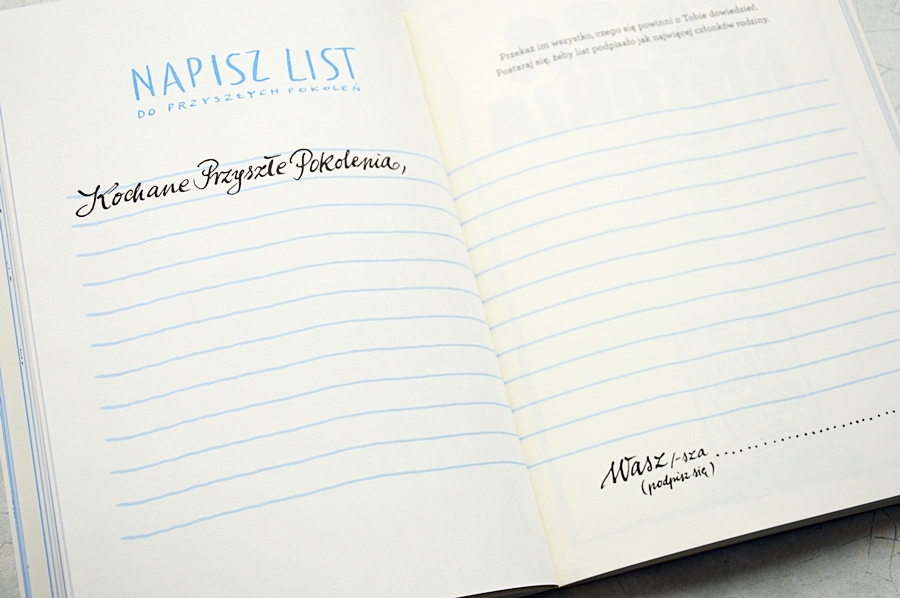 NAPISZ LIST
DO PRZYSZŁYCH POKOLEŃ
Kochane Przyszłe Pokolenia,
Przekaż im wszystko, czego się powinni o Tobie dowiedzieć.
Postaraj się, żeby list podpisało jak najwięcej członków rodziny.
Wasz/-sza ........................
(podpisz się)